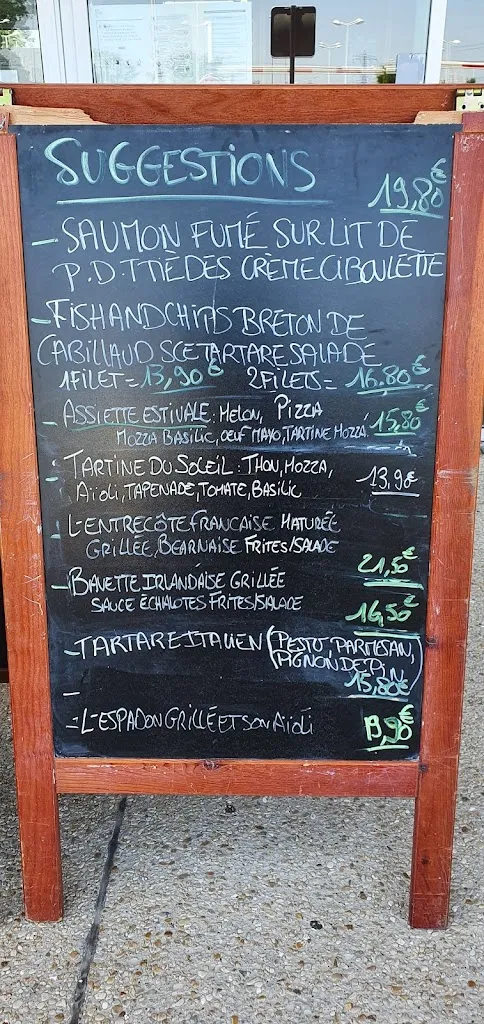 SUGGESTIONS
19,80€
- SAUMON FUMÉ SUR LIT DE
P.D.T TIÈDES CRÈME CIBOULETTE
- FISH AND CHIPS BRETON DE
CABILLAUD SCE TARTARE SALADE
1 FILET = 13,90€ 2 FILETS = 16.80€
- ASSIETTE ESTIVALE : MELON, PIZZA
MOZZA BASILIC, OEUF MAYO, TARTINE MOZZA. 15,80€
- TARTINE DU SOLEIL : THON, MOZZA,
AÏOLI, TAPENADE, TOMATE, BASILIC 13,90€
- L'ENTRECÔTE FRANCAISE MATURÉE
GRILLÉE, BEARNAISE FRITES/SALADE
21,50€
- BAVETTE IRLANDAISE GRILLÉE
SAUCE ÉCHALOTES FRITES/SALADE 16,50€
- TARTARE ITALIEN (PESTO-PARMESAN,
PIGNON DE PIN)
15,80€
-
- L'ESPADON GRILLÉ ET SON AÏOLI